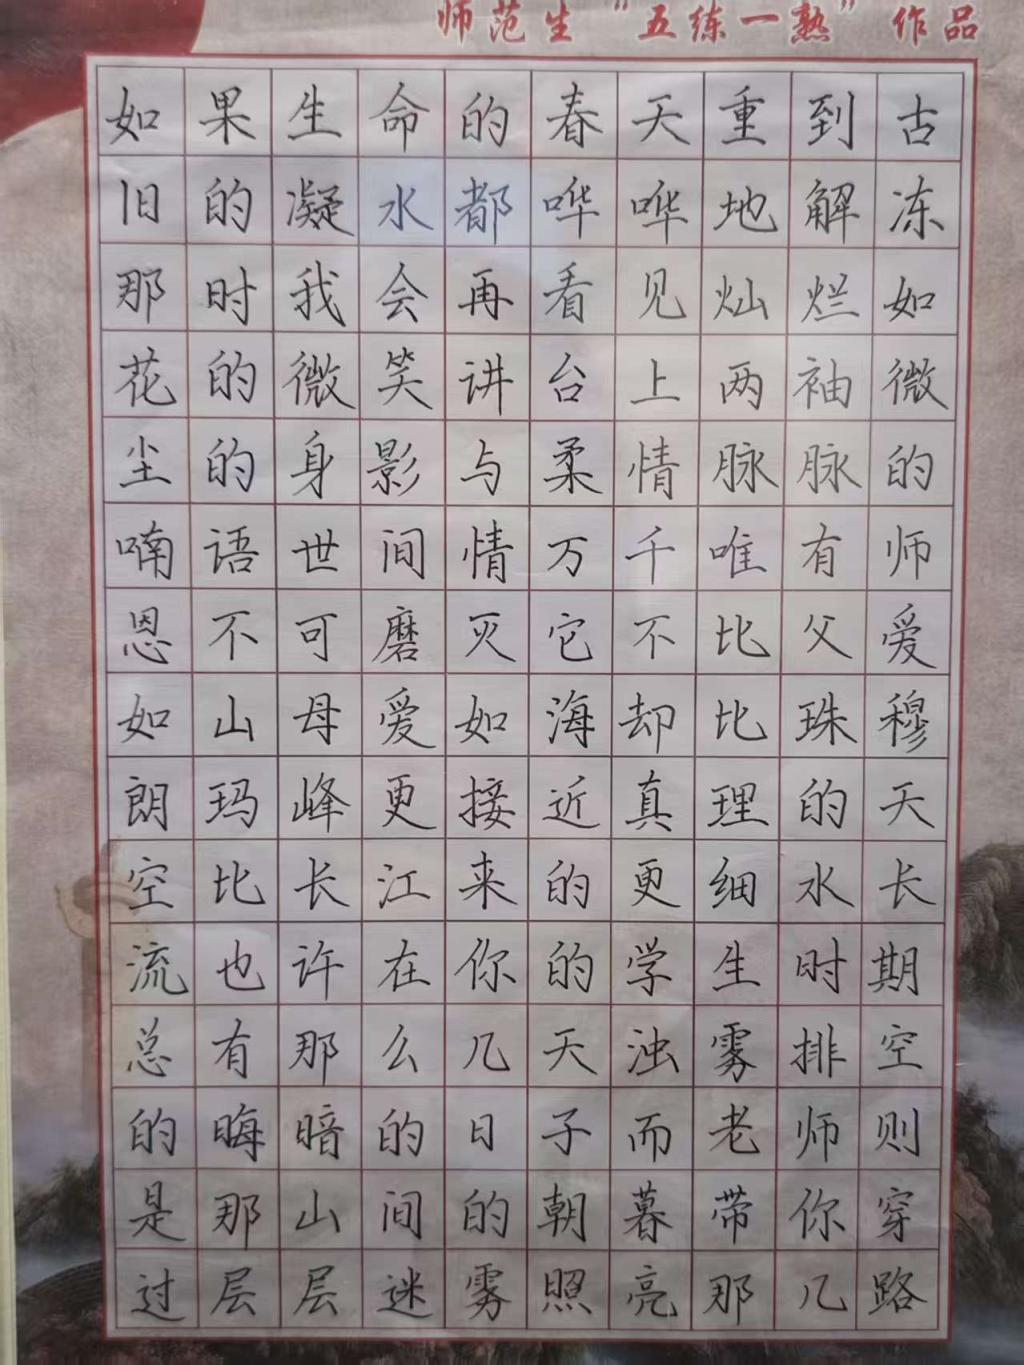 师范生“五练一熟”作品
如果生命的春天重到古
旧的凝水都哗哗地解冻
那时我会再看见灿烂如
花的微笑讲台上两袖微
尘的身影与柔情脉脉的
喃语世间情万千唯有师
恩不可磨灭它不比父爱
如山母爱如海却比珠穆
朗玛峰更接近真理的天
空比长江来的更细水长
流也许在你的学生时期
总有那么几天浊雾排空
的晦暗的日子而老师则
是那山间的朝暮带你穿
过层层迷雾照亮那几路